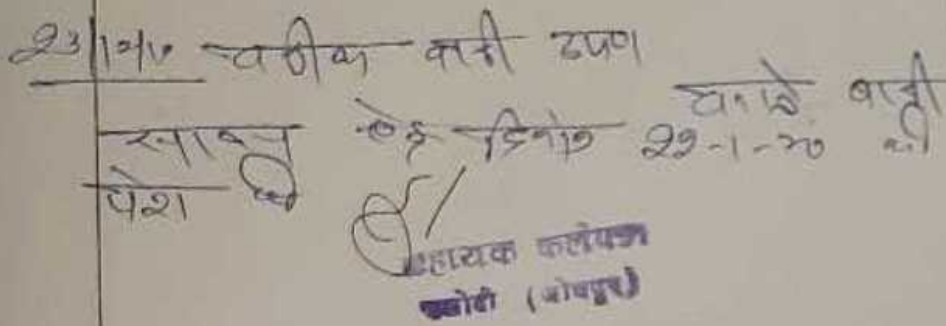 23/12/19 वकील वादी उपण
वास्ते वादी
साक्ष्य हेतु दिनांक 22-1-20 को
पेश
सहायक कलेक्टर
फलोदी (जोधपुर)